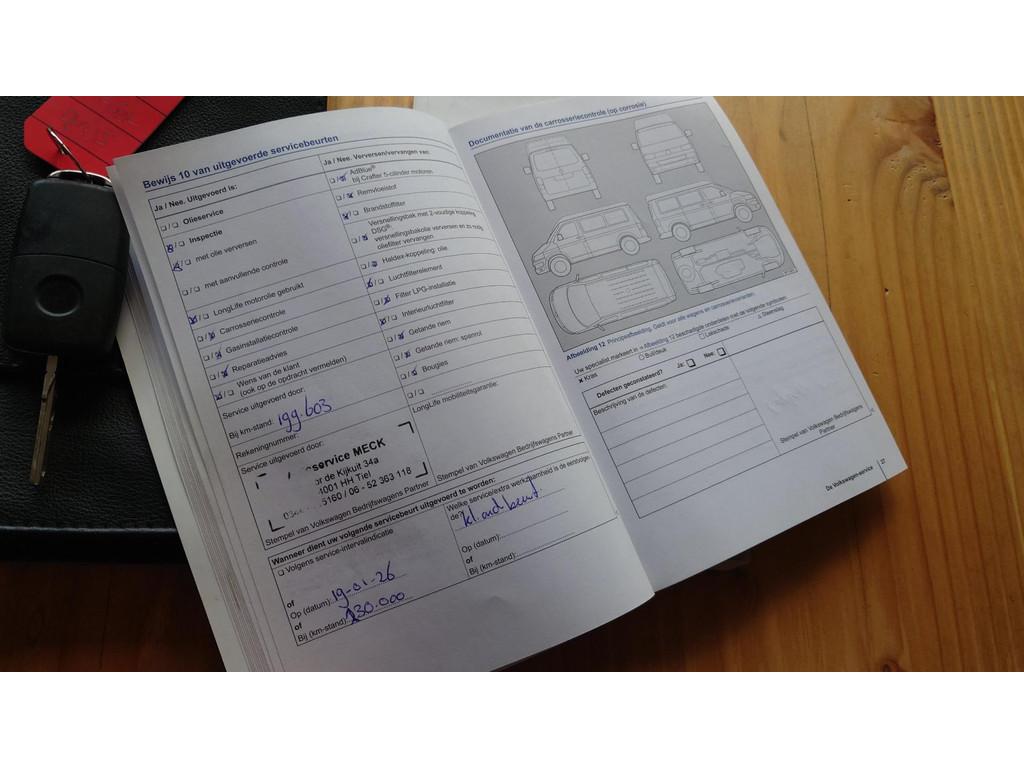 Bewijs 10 van uitgevoerde servicebeurten
Ja / Nee. Uitgevoerd is:
❑ / ❑ Olieservice
❑ / ❑ Inspectie
❑ / ❑ met olie verversen
❑ / ❑ met aanvullende controle
❑ / ❑ LongLife motorolie gebruikt
❑ / ❑ Carrosseriecontrole
❑ / ❑ Gasinstallatiecontrole
❑ / ❑ Reparatieadvies
❑ / ❑ Wens van de klant
(ook op de opdracht vermelden)
Service uitgevoerd door:
Bij km-stand: 199.603
Rekeningnummer:
Service uitgevoerd door:
service MECK
or de Kijkuit 34a
4001 HH Tiel
5160 / 06 - 52 363 118
Stempel van Volkswagen Bedrijfswagens Partner
Ja / Nee. Verversen/vervangen van:
❑ / ❑ AdBlue®
bij Crafter 5-cilinder motoren
❑ / ❑ Remvloeistof
❑ / ❑ Brandstoffilter
❑ / ❑ Versnellingsbak met 2-voudige koppeling
DSG®:
versnellingsbakolie verversen en zo nodig
oliefilter vervangen
❑ / ❑ Haldex-koppeling: olie
❑ / ❑ Luchtfilterelement
❑ / ❑ Filter LPG-installatie
❑ / ❑ Interieurluchtfilter
❑ / ❑ Getande riem
❑ / ❑ Getande riem: spanrol
❑ / ❑ Bougies
❑ / ❑
LongLife mobiliteitsgarantie:
Stempel van Volkswagen Bedrijfswagens Partner
Wanneer dient uw volgende servicebeurt uitgevoerd te worden:
❑ Volgens service-intervalindicatie
of
Op (datum): 19-01-26
of
Bij (km-stand): 230.000
Welke service/extra werkzaamheid is de eerstvolgen-
de?: kl. ond. beurt
Op (datum):
of
Bij (km-stand):
Documentatie van de carrosseriecontrole (op corrosie)
Afbeelding 12 Principeafbeelding. Geldt voor alle wagens en carrosserievarianten.
Uw specialist markeert in ⇒ Afbeelding 12 beschadigde onderdelen met de volgende symbolen:
✖ Kras ❍ Buil/deuk ❑ Lakschade △ Steenslag
Defecten geconstateerd? Ja: ❑ Nee: ❑
Beschrijving van de defecten:
Stempel van Volkswagen Bedrijfswagens
Partner
De Volkswagen-service 37